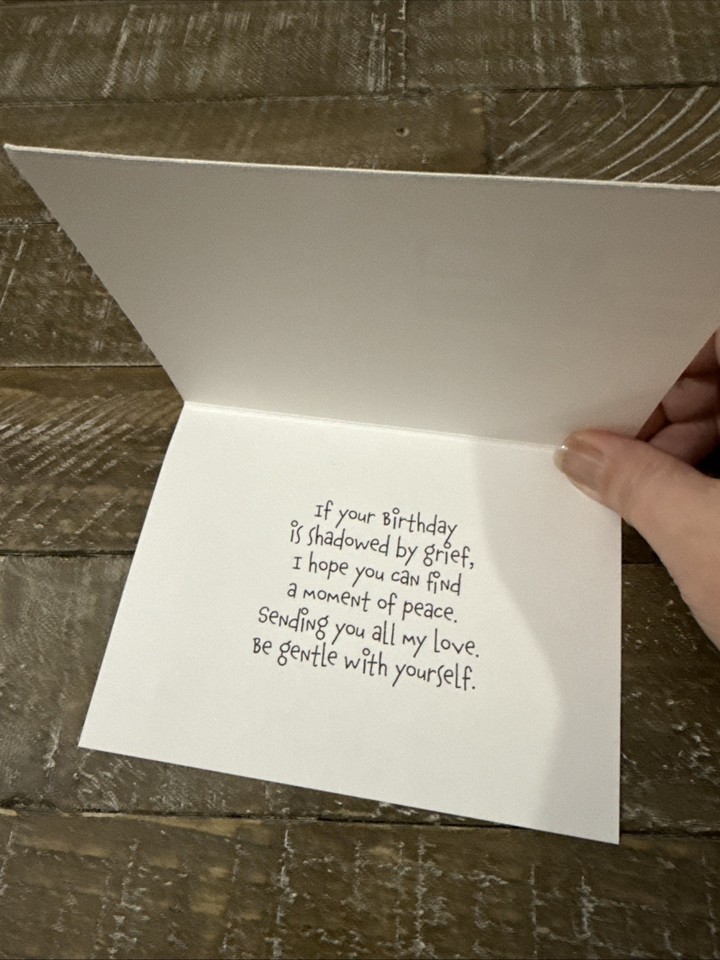 If your Birthday
is shadowed by grief,
I hope you can find
a moment of peace.
Sending you all my love.
Be gentle with yourself.